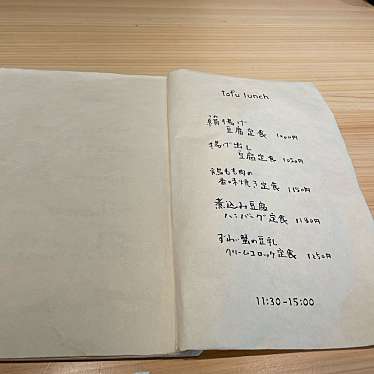 tofu lunch
揚げ
豆腐定食 1000円
揚げ出し
豆腐定食 1050円
鶏もも肉の
香味焼き定食 1150円
煮込み豆腐
ハンバーグ定食 1180円
ずわい蟹の豆乳
クリームコロッケ定食 1250円
11:30-15:00